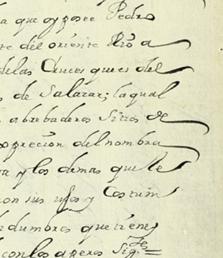 la que posee Pedro
te del oriente Rio a
de las Cruces que es del
o de Salazar; la qual
n abrebaderos Sitios de
oprecion del nombra
ra y los demas que le
con sus usos y Costum
rdumbres que tiene
con los aperos Sig.tes